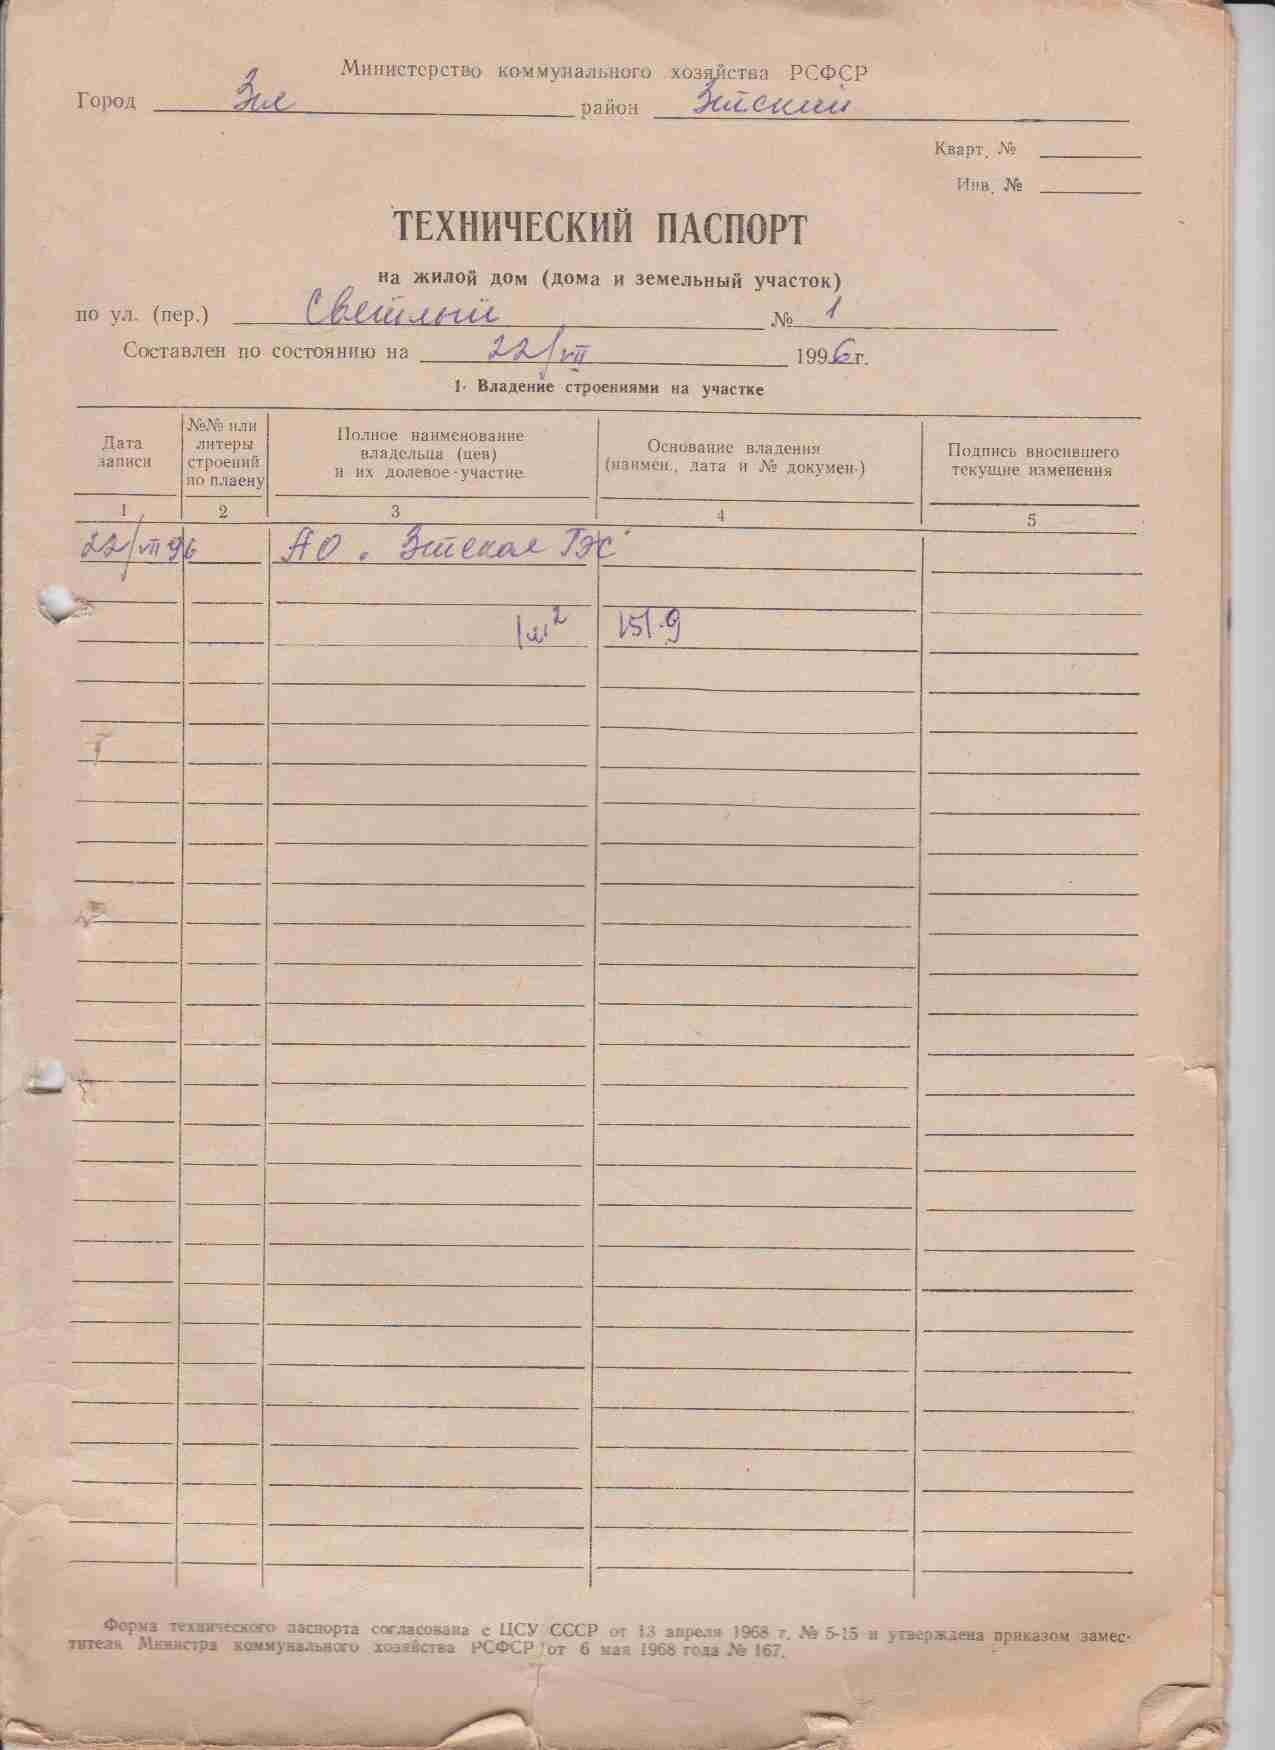 Министерство коммунального хозяйства РСФСР
Город Зея район Зейский
Кварт. №
Инв. №
ТЕХНИЧЕСКИЙ ПАСПОРТ
на жилой дом (дома и земельный участок)
по ул. (пер.) Светлый № 1
Составлен по состоянию на 22/VII 1996 г.
1. Владение строениями на участке
Дата записи
№№ или литеры строений по плаену
Полное наименование владельца (цев) и их долевое участие
Основание владения (наимен., дата и № докумен.)
Подпись вносившего текущие изменения
1 2 3 4 5
22/VII 96 АО "Зейская ГЭС"
1м² 151.9
Форма технического паспорта согласована с ЦСУ СССР от 13 апреля 1968 г. № 5-15 и утверждена приказом замес-
тителя Министра коммунального хозяйства РСФСР от 6 мая 1968 года № 167.